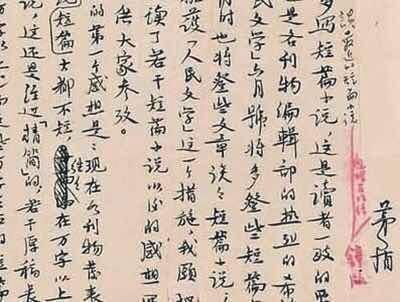 茅盾
谈最近的短篇小说
多写短篇小说，這是讀者一致的
也是各刊物編輯部的热烈的希
民文学》六月號将多登些短篇
时也将登些文章谈谈短篇小说，
護《人民文学》这一个措施，我願把
读了若干短篇小说以后的感想写
供大家参考。
的第一个感想是：现在各刊物發表
短篇大都不短，往往在万字以上
说，这还是经过“精简”的，若干原稿長